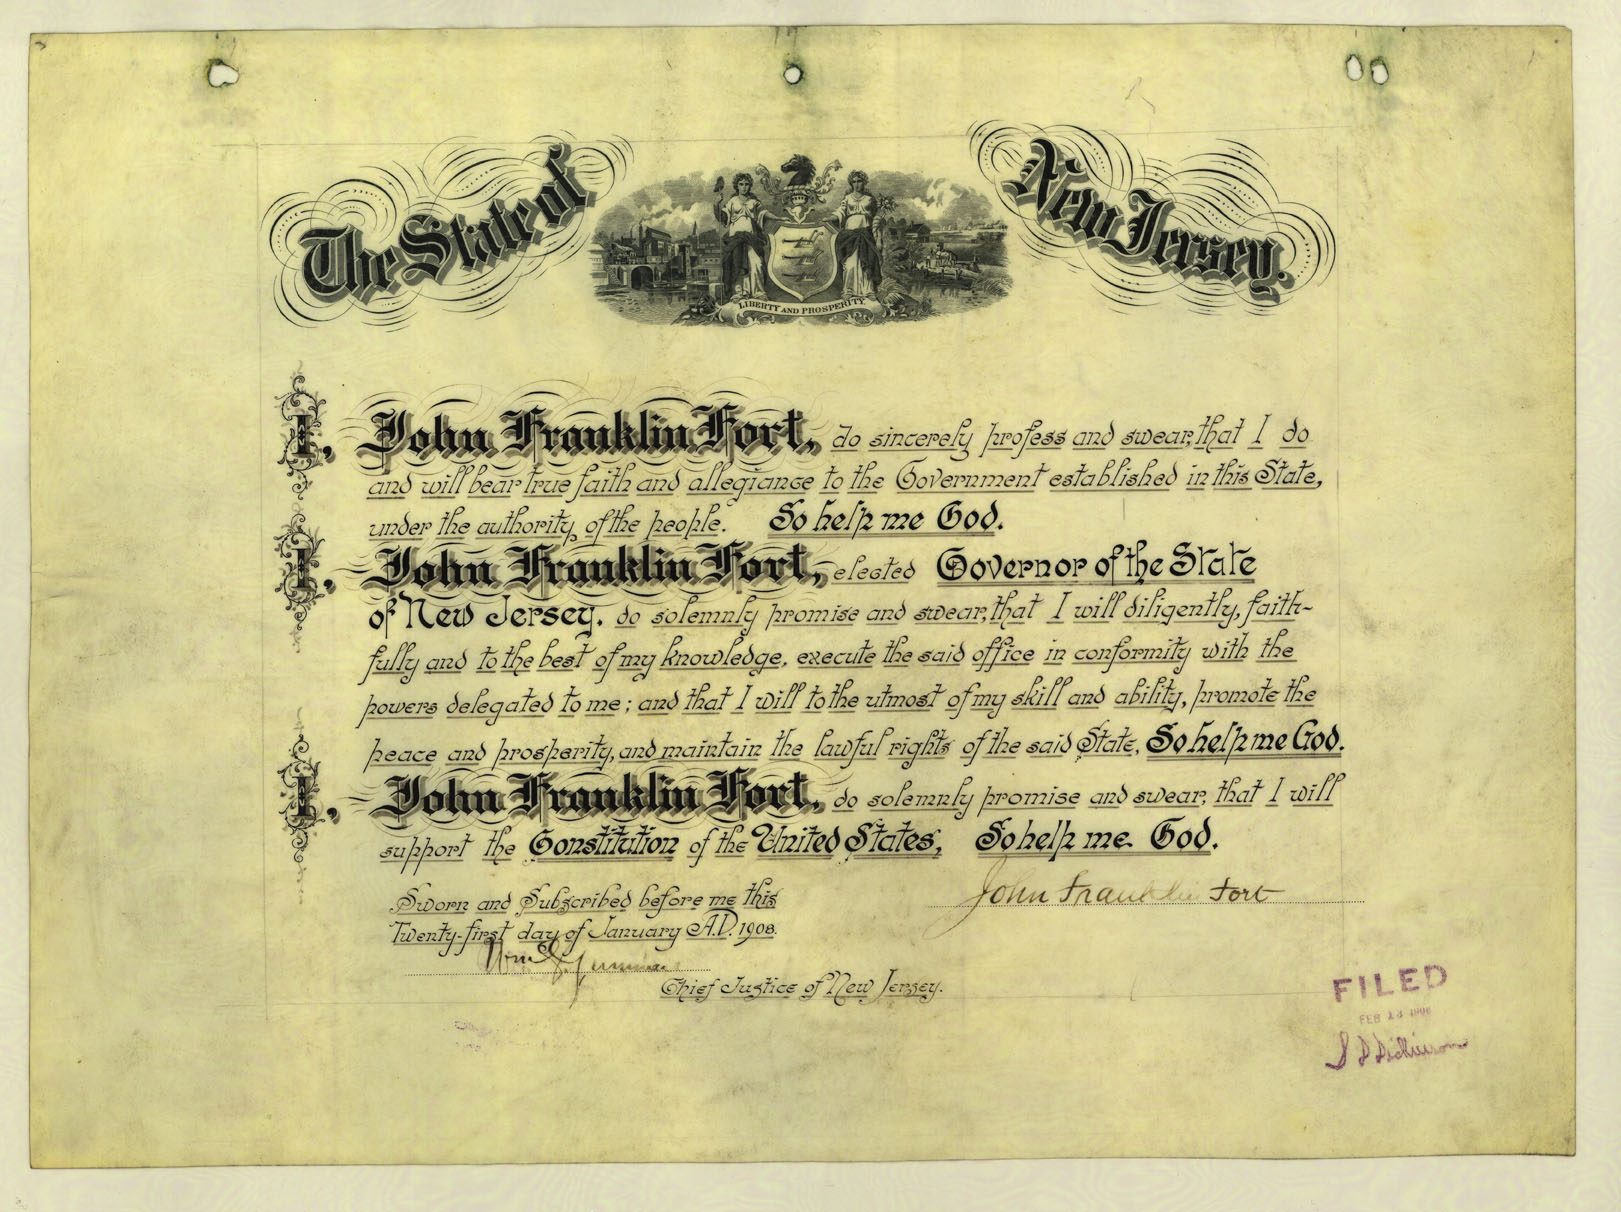 The State of New Jersey.
LIBERTY AND PROSPERITY
I, John Franklin Fort, do sincerely profess and swear, that I do
and will bear true faith and allegiance to the Government established in this State,
under the authority of the people. So help me God.
I, John Franklin Fort, elected Governor of the State
of New Jersey, do solemnly promise and swear, that I will diligently, faith-
fully and to the best of my knowledge, execute the said office in conformity with the
powers delegated to me; and that I will to the utmost of my skill and ability, promote the
peace and prosperity, and maintain the lawful rights of the said State, So help me God.
I, John Franklin Fort, do solemnly promise and swear, that I will
support the Constitution of the United States, So help me God.
John Franklin Fort
Sworn and Subscribed before me this
Twenty-first day of January A.D. 1908.
Wm S.
Chief Justice of New Jersey.
FILED
FEB
S D Dickinson